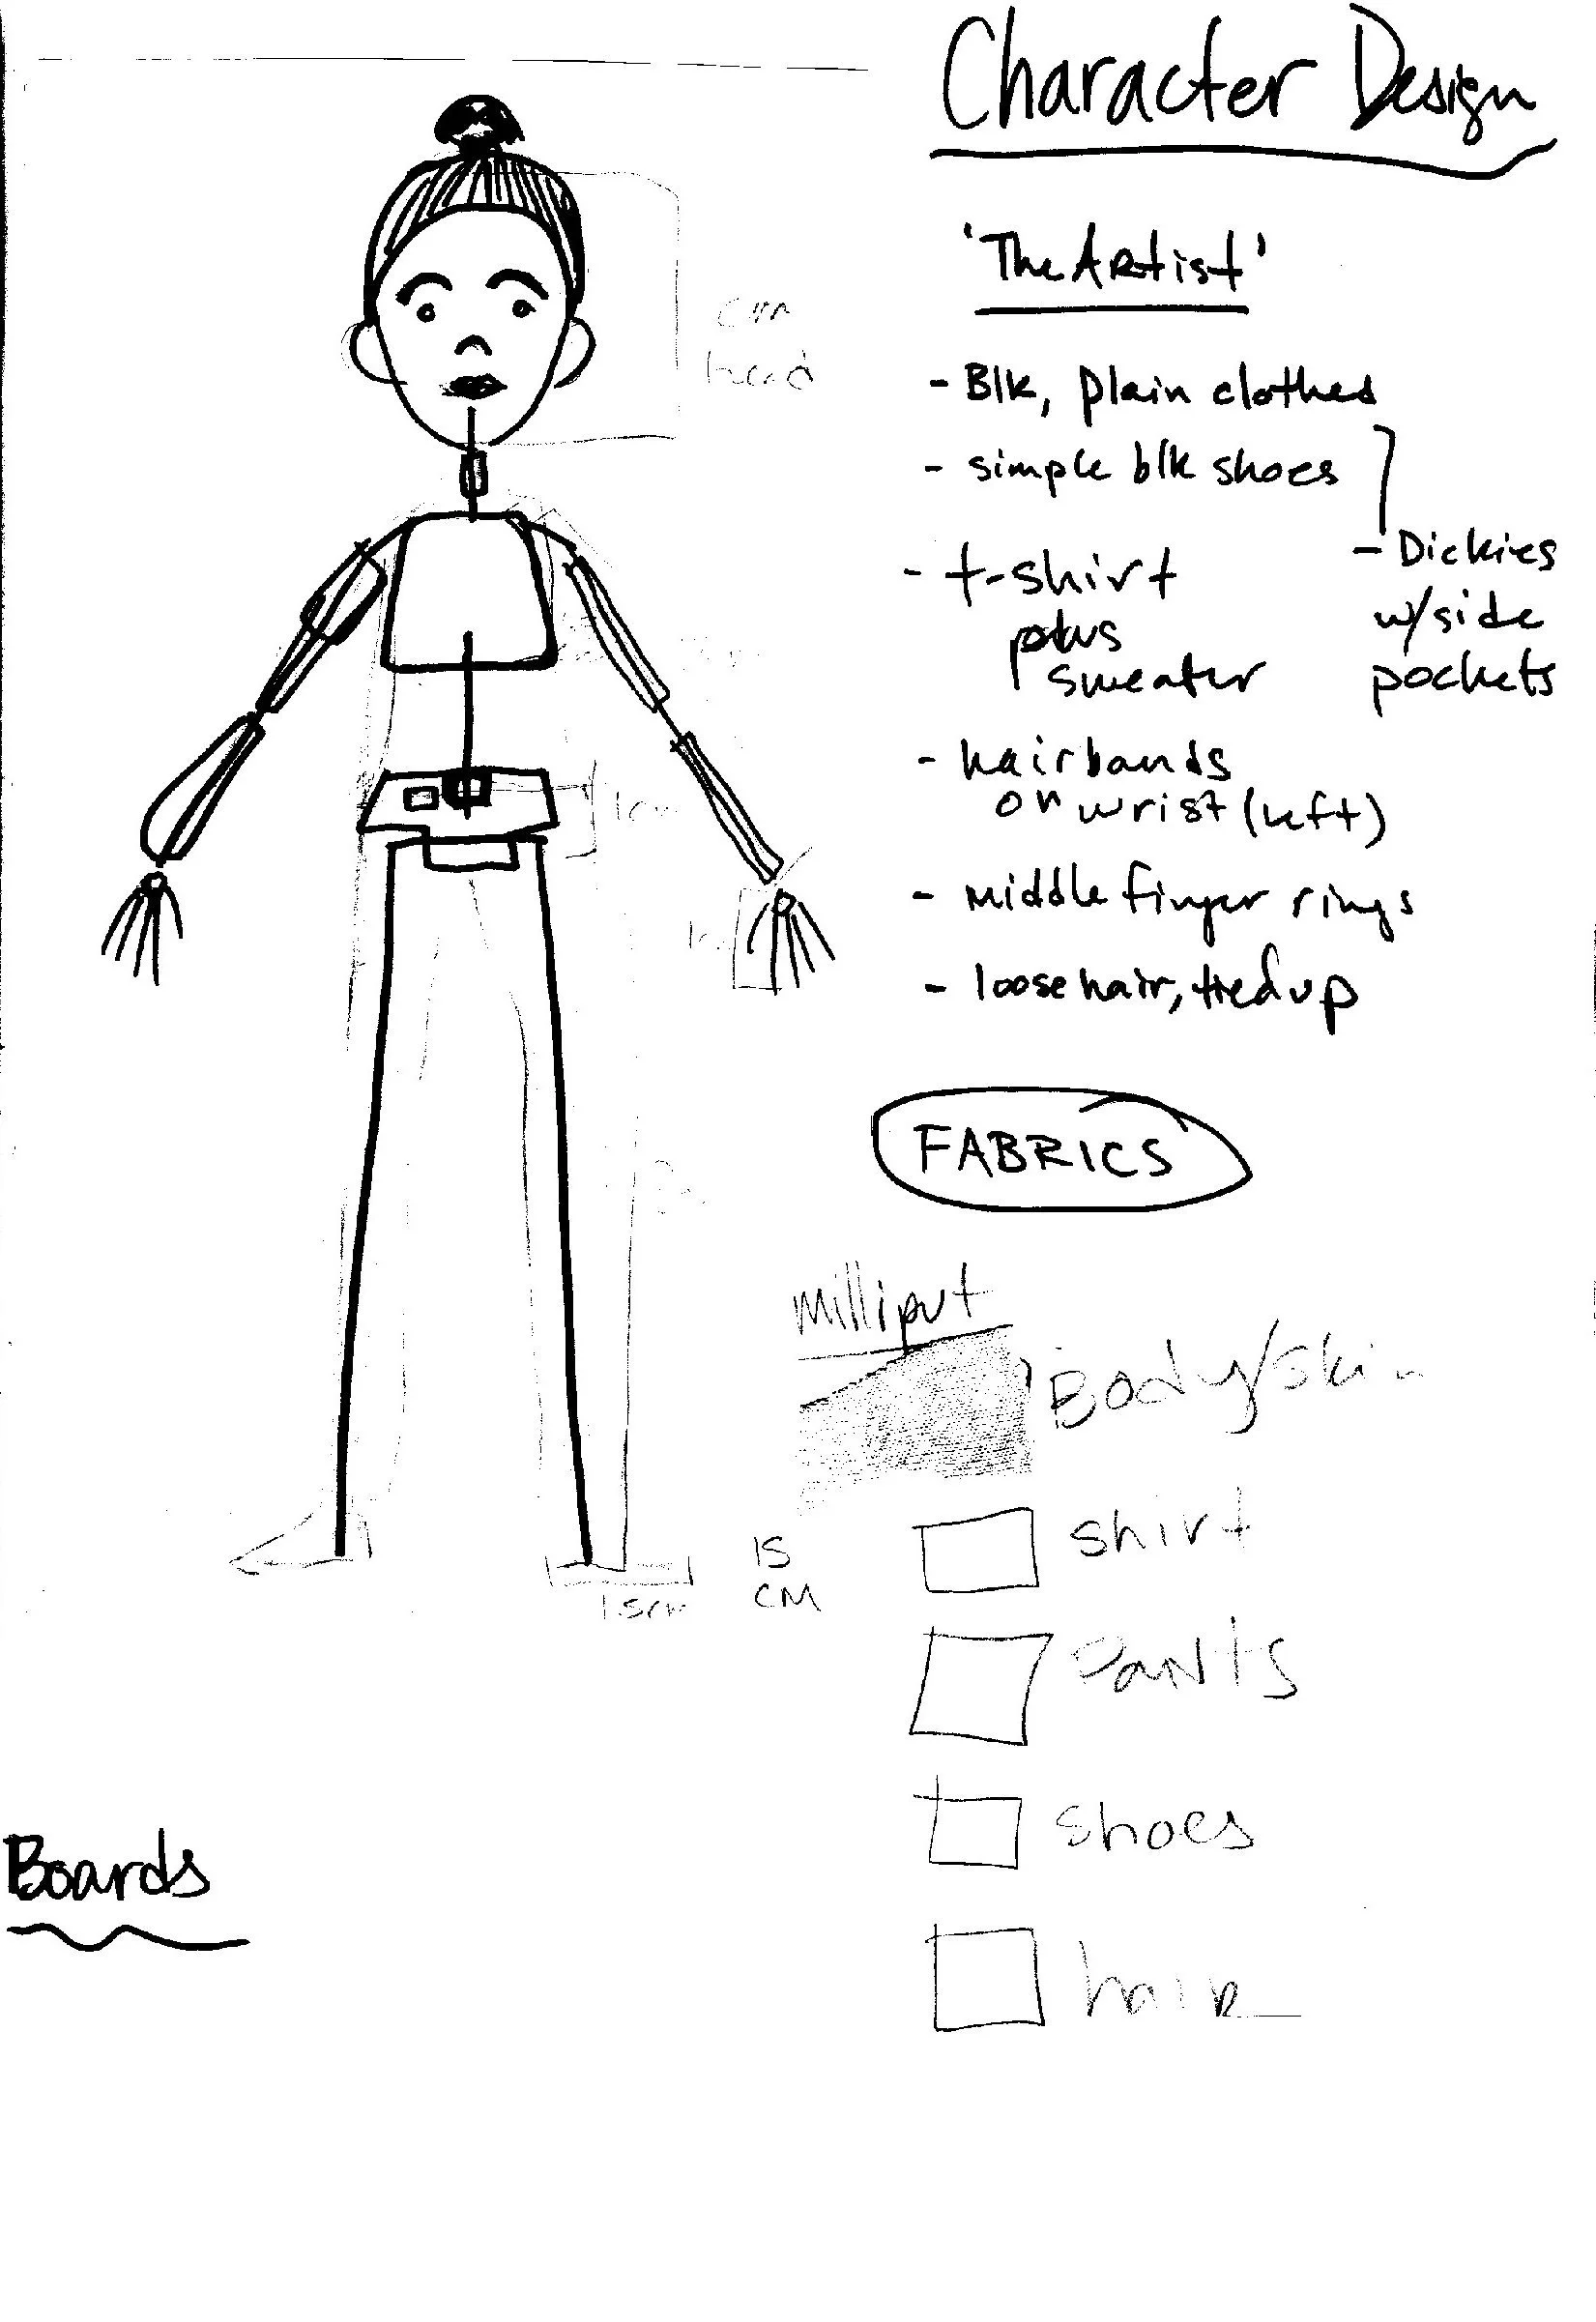 Character Design
'The Artist'
- Blk, plain clothes
- simple blk shoes
- Dickies
w/side
pockets
- t-shirt
plus
sweater
- hairbands
on wrist (left)
- middle finger rings
- loose hair, tied up
cm
head
1cm
FABRICS
milliput
Body/skin
shirt
Pants
shoes
hair
15
CM
1.5cm
Boards